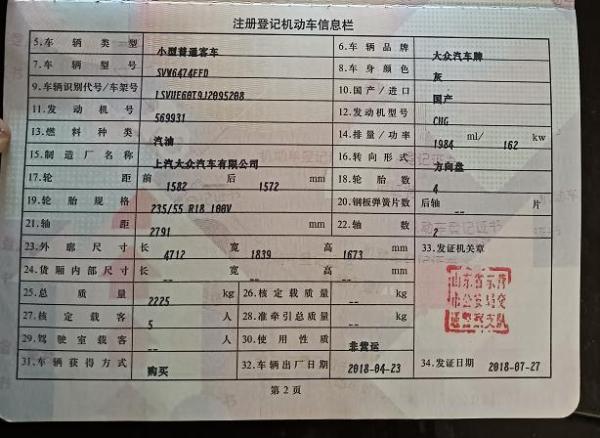 注册登记机动车信息栏
5.车辆类型 小型普通客车 6.车辆品牌 大众汽车牌
7.车辆型号 SVW6474FFD 8.车身颜色 灰
9.车辆识别代号/车架号 LSVUE60T9J2095208 10.国产/进口 国产
11.发动机号 569931 12.发动机型号 CUG
13.燃料种类 汽油 14.排量/功率 1984 ml/ 162 kw
15.制造厂名称 上汽大众汽车有限公司 16.转向形式 方向盘
17.轮距 前 1582 后 1572 mm 18.轮胎数 4
19.轮胎规格 235/55 R18 100V 20.钢板弹簧片数 后轴 -- 片
21.轴距 2791 mm 22.轴数 2
23.外廓尺寸 长 4712 宽 1839 高 1673 mm 33.发证机关章
24.货厢内部尺寸 长 -- 宽 -- 高 -- mm
25.总质量 2225 kg 26.核定载质量 -- kg
27.核定载客 5 人 28.准牵引总质量 -- kg
29.驾驶室载客 -- 人 30.使用性质 非营运
31.车辆获得方式 购买 32.车辆出厂日期 2018-04-23 34.发证日期 2018-07-27
山东省东营
市公安局交
通警察支队
第2页